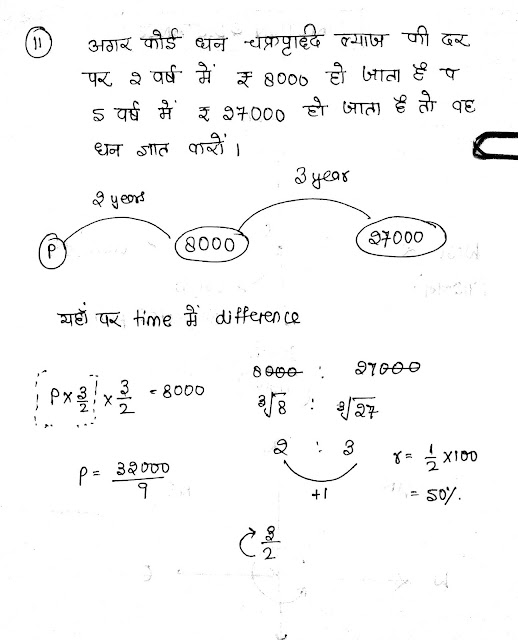 11 अगर कोई धन चक्रवृद्धि ब्याज की दर
पर 2 वर्ष में ₹ 8000 हो जाता है व
5 वर्ष में ₹ 27000 हो जाता है तो वह
धन ज्ञात करों।
2 years
3 year
P 8000 27000
यहाँ पर time में difference
8000 : 27000
P × 3/2 × 3/2 = 8000
∛8 : ∛27
2 : 3
r = 1/2 × 100
P = 32000/9
+1
= 50%.
3/2